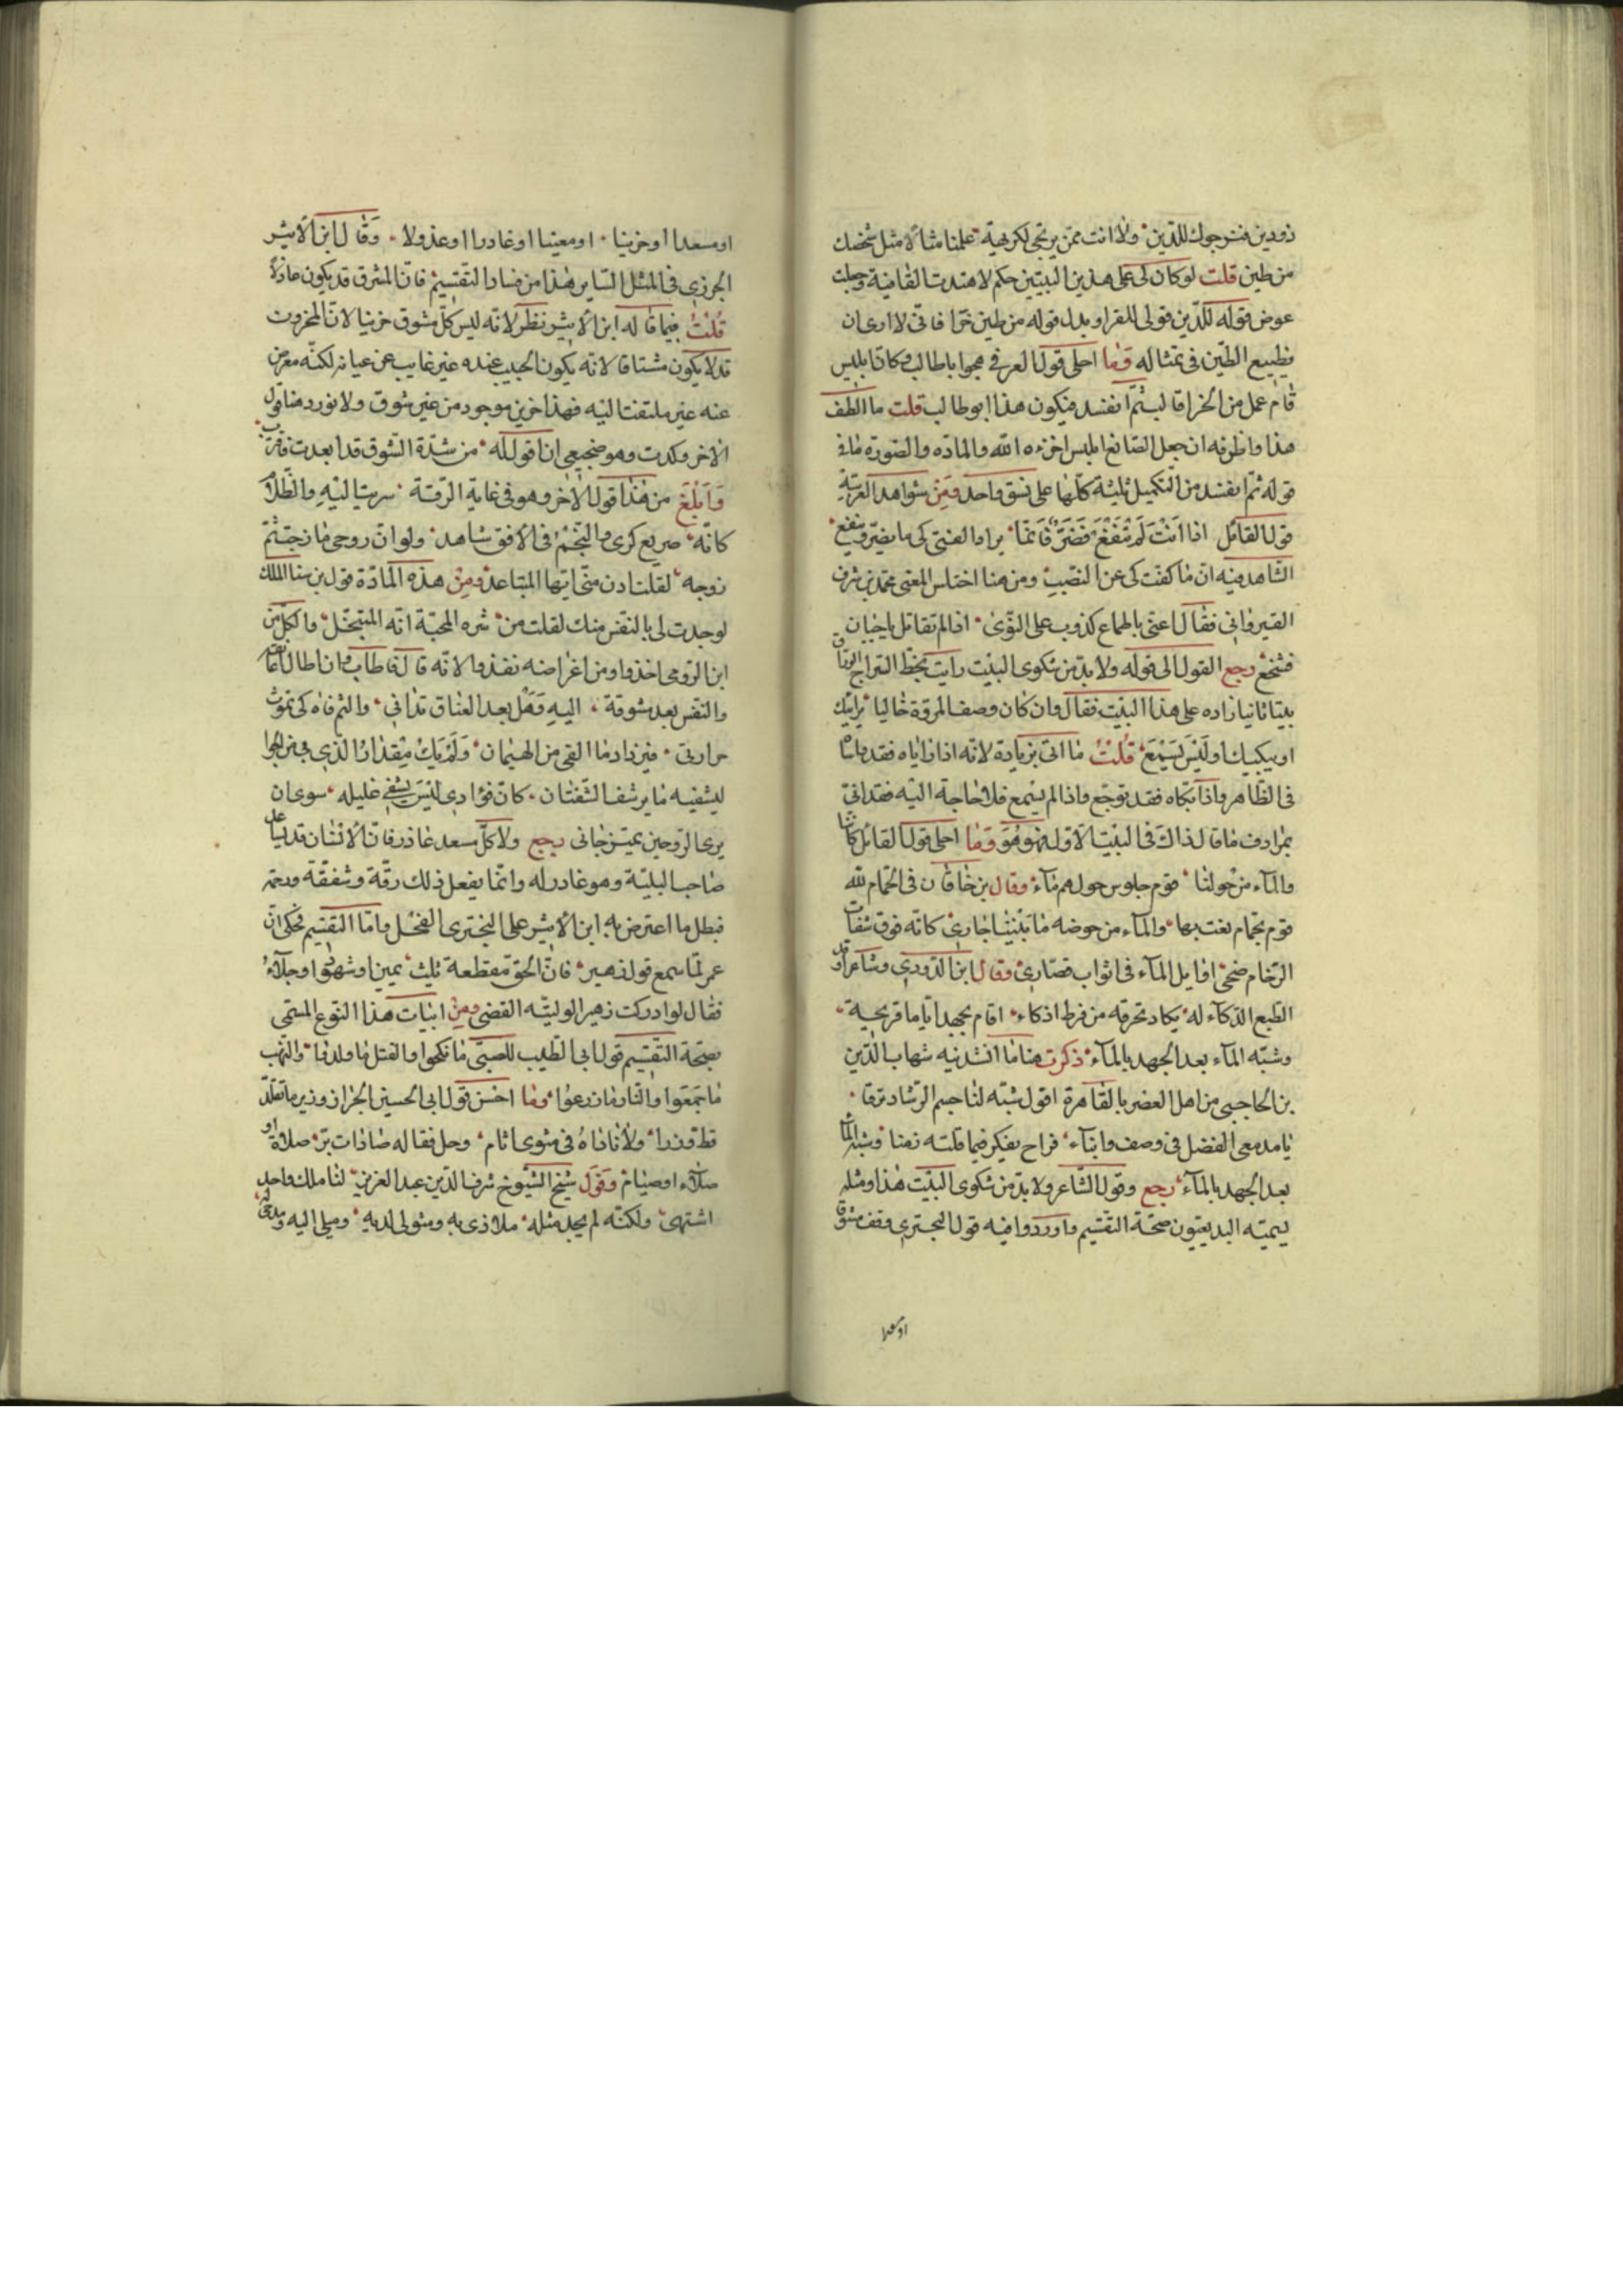 ذودين فنرجوك للدّين ولا انت ممّن يرتجى لكريهة علمنا مثالا مثل شخصك
من طين قلت لو كان لى على هذين البيتين حكم لا هتدت القافية وجعلت
عوض قوله للدّين قولى للقرا وبدل قوله من طين خرا فانّى لا ارى ان
يضيع الطّين فى تمثاله وما احلى قول العرفى هجوا باطالب وكان ابليس
قام عمل من الخرا قالب ثمّ انفسد فيكون هذا ابو طالب قلت ما الطف
هذا واظرفه ان جعل الصّانع ابليس اخزه الله والمادّه والصّورة ما فى
قوله ثمّ انفسد من التّكميل ثليثة كلّها على نسق واحد ومن شواهد العربيّة
قول القائل اذا انت لم تنفع فضرّ فانّما يراد الفتى كى ما يضرّ وينفع
الشّاهد فيه انّ ما كفت كى عن النّصب ومن هنا اختلس المعنى محمّد بن شرف
القيروانى فقال اعنّى باطماع كذوب على النّوى اذا لم تقاتل يا جبان
فشجّع رجع القول الى قوله ولا بدّ من شكوى البيت رايت بخطّ السّراج الورّاق
بيتا ثانيا زاده على هذا البيت فقال وان كان وصف المروّة خاليا يرائيك
او يبكيك او ليس يسمع قلت ما اتى بزيادة لانّه اذا راياه فقد واساه
فى الظّاهر واذا بكاه فقد توجّع واذا لم يسمع فلا حاجة اليه فقد اتى
بمرادف ما قال ذاك فى البيت الاوّل فهو هو وما احلى قول القائل كانّنا
والماء من حولنا قوم جلوس حولهم ماء وقال بن خاقان فى الحمّام لله
قوم بحمّام نعت بها والماء من حوضه ما بيننا جارى كانّه فوق شفّات
الرّخام ضحى اوايل الماء فى اثواب قصّارى وقال ابن الذّروى وشاعر اوقد
الطّبع الذّكاء له يكاد تحرقه من فرط اذكاء اقام يجهد ايّاما قريحة
وشبّه الماء بعد الجهد بالماء ذكرت هنا ما انشدنيه شهاب الدّين
بن الحاجبى من اهل العصر بالقاهرة اقول شبّه لنا جسم الرّشا ترفا
يا مدعى الفضل فى وصف وابناء فراح يفكر فيما قلته زمنا وشبه الماء
بعد الجهد بالماء رجع وقول الشّاعر ولا بدّ من شكوى البيت هذا ومثله
يسمّيه البديعيّون صحّة التّقسيم واوردوا فيه قول البحترى وقف مشوقا
او مسعدا
او مسعدا او حزينا او معينا او غادرا او عذولا وقال ابن الاثير
الجزرى فى المثل السّاير هذا من فساد التّقسيم فانّ المشوق قد يكون عاذلا
قلت فيما قاله ابن الاثير نظر لانّه ليس كلّ مشوق حزينا لانّ المحزون
قد لا يكون مشتاقا لانّه يكون الحبيب عنده غير غايب عن عيانه لكنّه معرض
عنه غير ملتفت اليه فهذا حزين موجود من غير شوق ولا نورد هنا قول
الاخر وكدت وهو ضجيعى ان اقول له من شدّة الشّوق قد ابعدت فاقترب
وابلغ من هذا قول الاخر وهو فى غاية الرّقّة سريت اليه والظّلام
كانّه صريع كرى والنّجم فى الافق شاهد ولو انّ روحى مازجت ثمّ
روحه لقلت ادن منّى ايّها المتباعد ومن هذه المادّة قول بن سنا الملك
لو جدت لى بالنّفس منك لقلت من شره المحبّة انّه المتبخّل والكلّ من
ابن الرّومى اخذوا ومن اغراضه نفذوا لانّه قال فاطاب وانا طال
والنّفس بعد مشوقة اليه وهل بعد العناق تدانى والثم فاه كى تموت
حرارتى فيزداد ما القى من الهيمان ولم يك مقدار الذى بى من الجوا
ليشفيه ما يرشف الشّفتان كانّ فؤادى ليس يشفى غليله سوى ان
يرى الرّوحين يمتزجانى رجع ولا كلّ مسعد غادر فانّ الانسان قد يساعد
صاحب البليّة وهو غادر له وانّما يفعل ذلك رقّة وشفقة ورحمة
فبطل ما اعترض به ابن الاثير على البحترى الفحل وامّا التّقسيم فحكى انّ
عمر لمّا سمع قول زهير فانّ الحقّ مقطعه ثلث يمين او شهود او جلاء
فقال لو ادركت زهيرا لوليته القضى ومن ابيات هذا النّوع المسمّى
بصحّة التّقسيم قول ابى الطّيب للسّبى ما نكحوا والقتل ما ولدوا والنّهب
ما جمعوا والنّار ما زرعوا وما احسن قول ابى الحسين الجزار وزير ما تقلّد
قطّ وزرا ولا اناداه فى مثوى اثام وجلّ فعاله صادات برّ صلاة او
صلاء او صيام وقول شيخ الشّيوخ شرف الدّين عبد العزيز لنا ملك واحد
اشتهى ولكنّه لم يجد مثله ملاذى به ومثولى لديه وميلى اليه ومدحى له